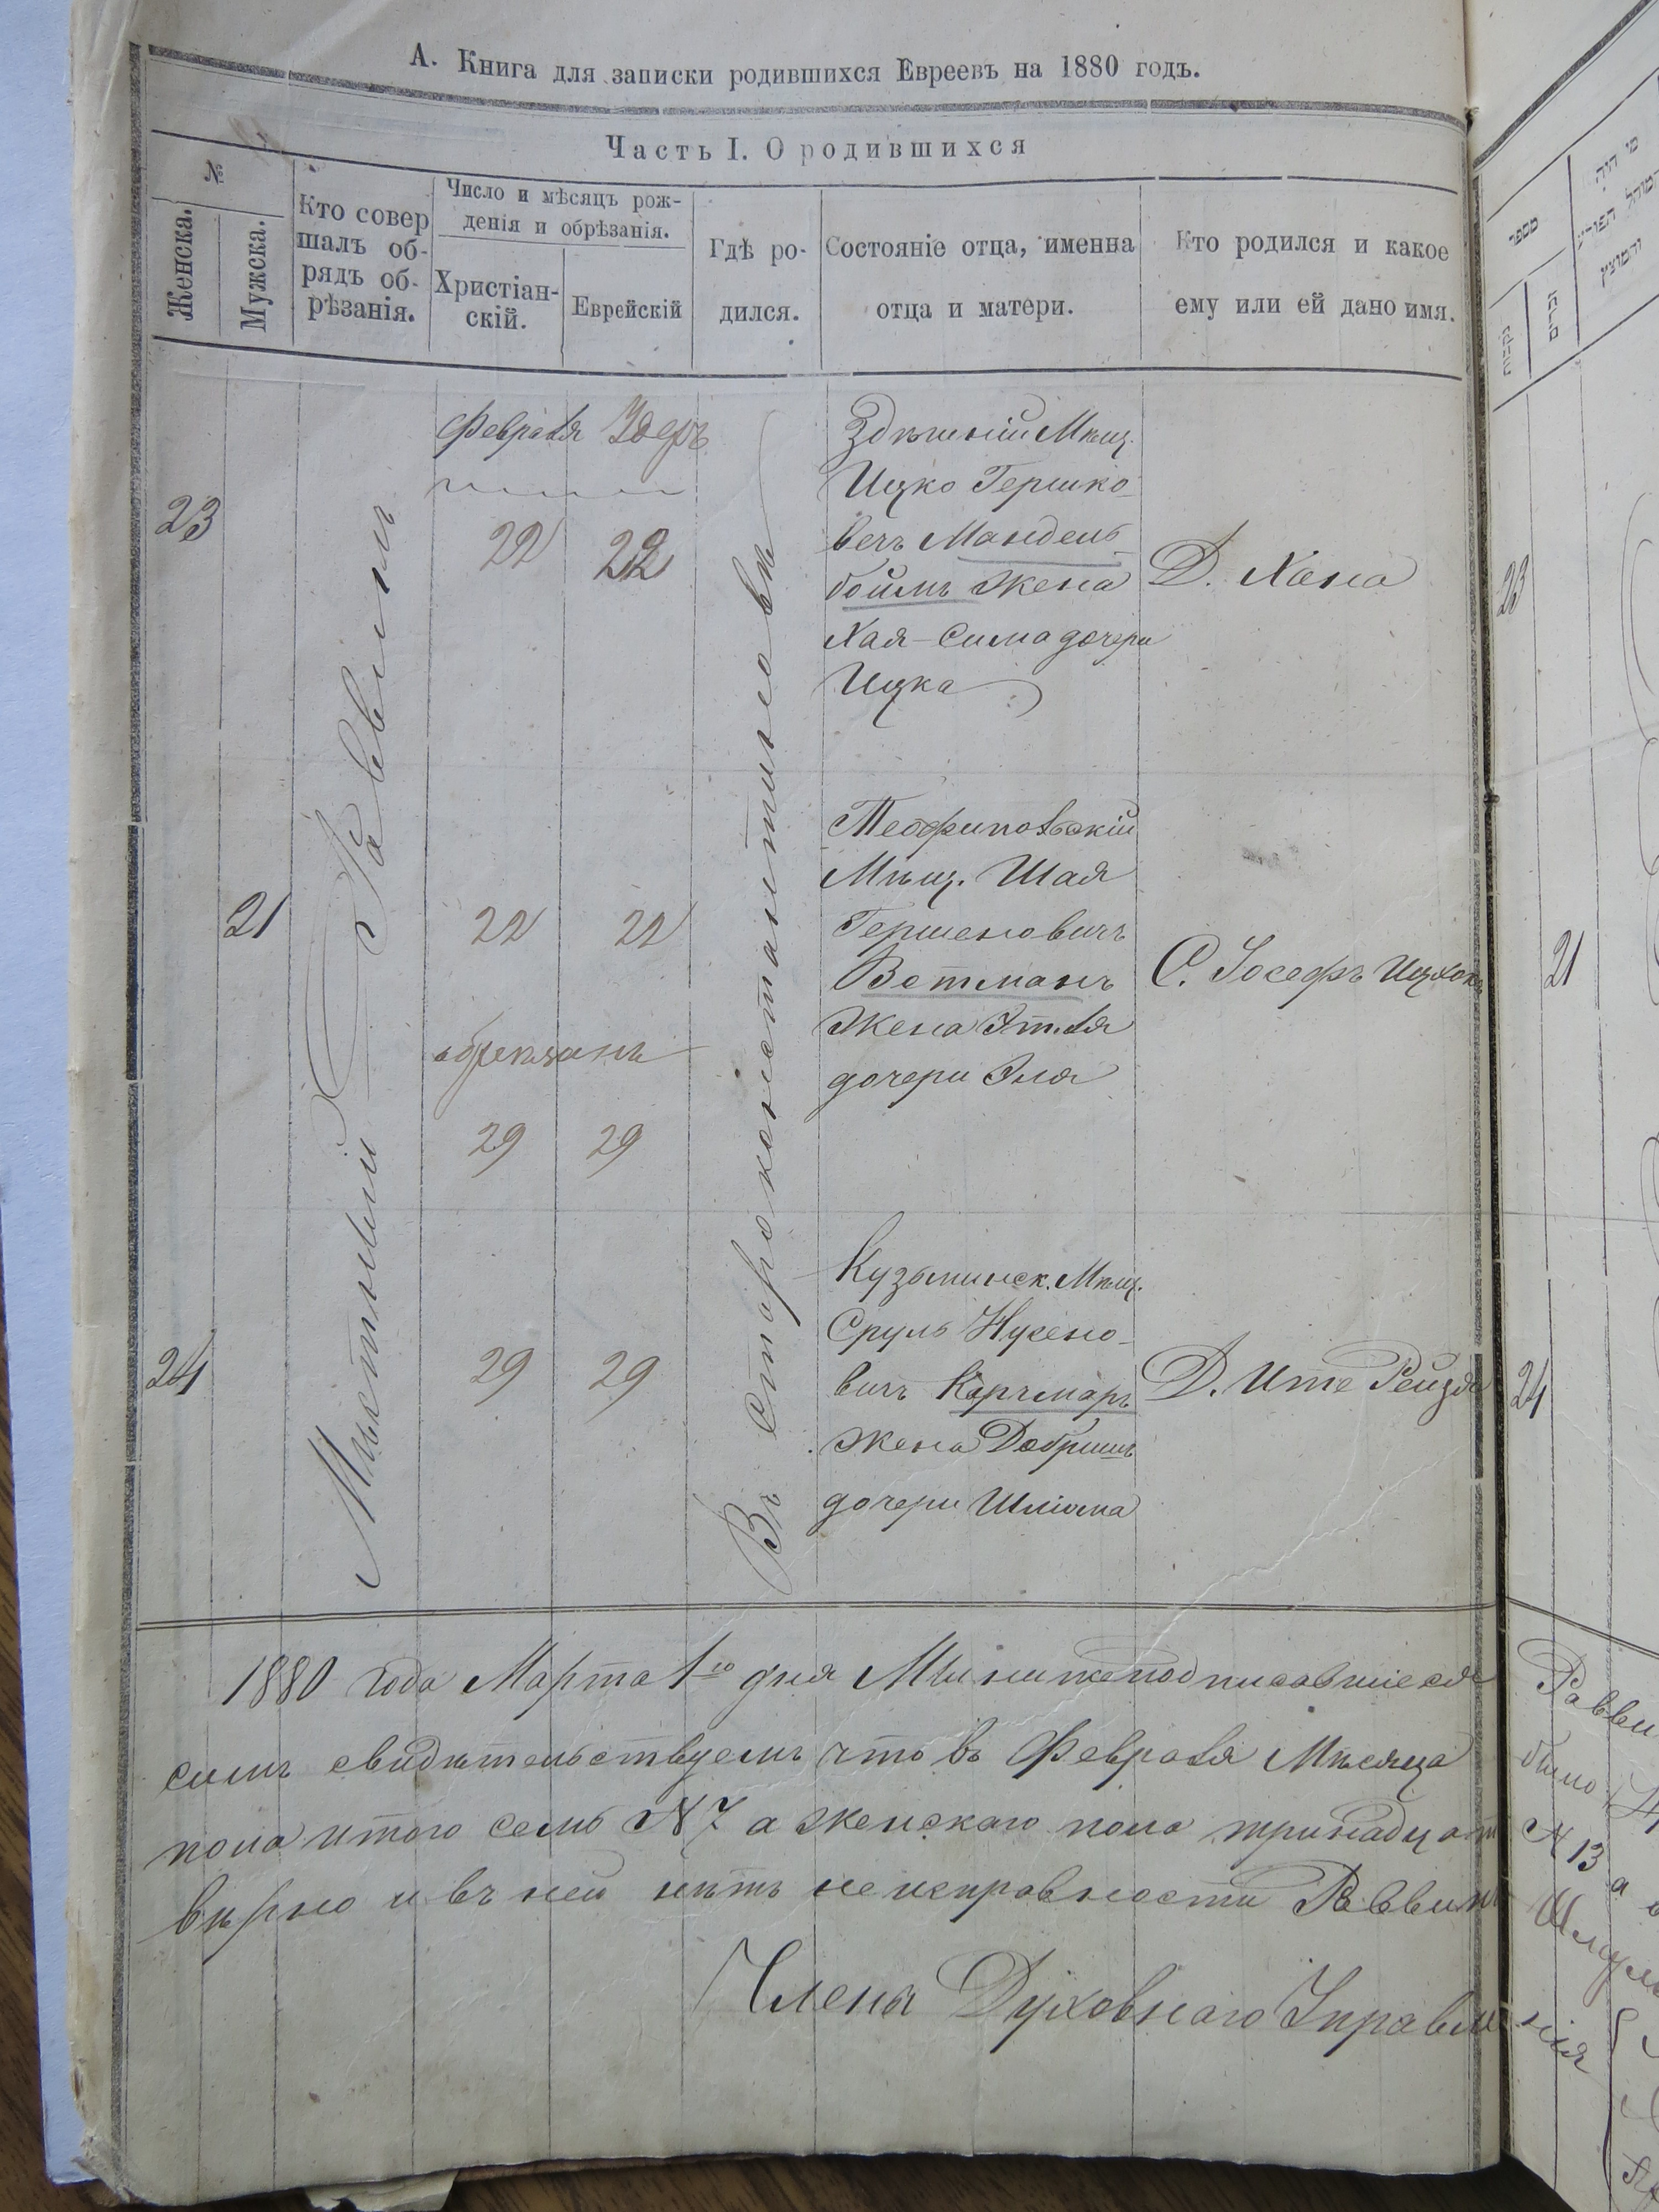 А. Книга для записки родившихся Евреевъ на 1880 годъ.
Часть I. О родившихся
№
Женска.
Мужска.
Кто совер
шалъ об-
рядъ об-
рѣзанія.
Число и мѣсяцъ рож-
денія и обрѣзанія.
Христіан-
скій.
Еврейскій
Гдѣ ро-
дился.
Состояніе отца, именна
отца и матери.
Кто родился и какое
ему или ей дано имя.
Мѣстный Раввинъ
Въ Староконстантиновѣ
Февраля Адеръ
23
22 22
Здѣшній Мѣщ.
Ицко Гершко-
вечъ Мандель-
боймъ жена
Хая-Сима дочери
Ицка
Д. Хана
21
22 22
обрезанъ
29 29
Теофипольскій
Мѣщ. Шая
Гершеновичъ
Вотманъ
Жена Этля
дочери Эля
С. Іосефъ Ицхокъ
24
29 29
Кузьминск. Мѣщ.
Сруль Нусено-
вичъ Карчмаръ
жена Добришъ
дочери Шліома
Д. Ите Рейзя
1880 года Марта 1го дня Мы нижеподписавшіеся
симъ свидѣтельствуемъ что въ Февраля Мѣсяца
пола итого семь № 7 а женскаго пола тринадцат
вѣрно и въ ней нѣтъ неисправности Раввинъ
Члена Духовнаго Управле
מספר
נקבות
זכרים
23
21
24
было
№ 13 а
нія